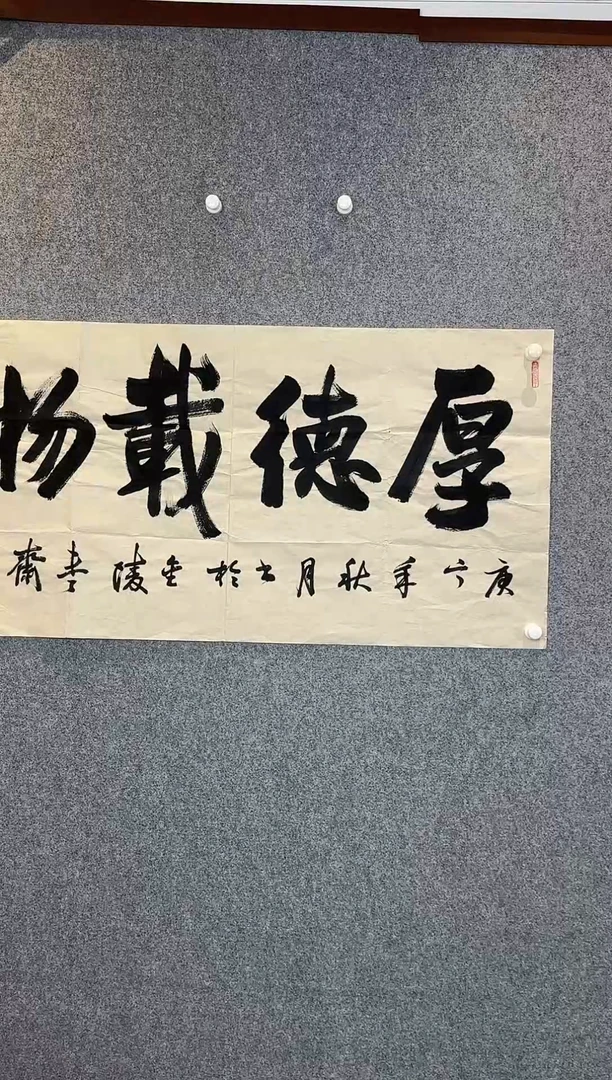 厚德載物
庚年秋月书於金陵齋